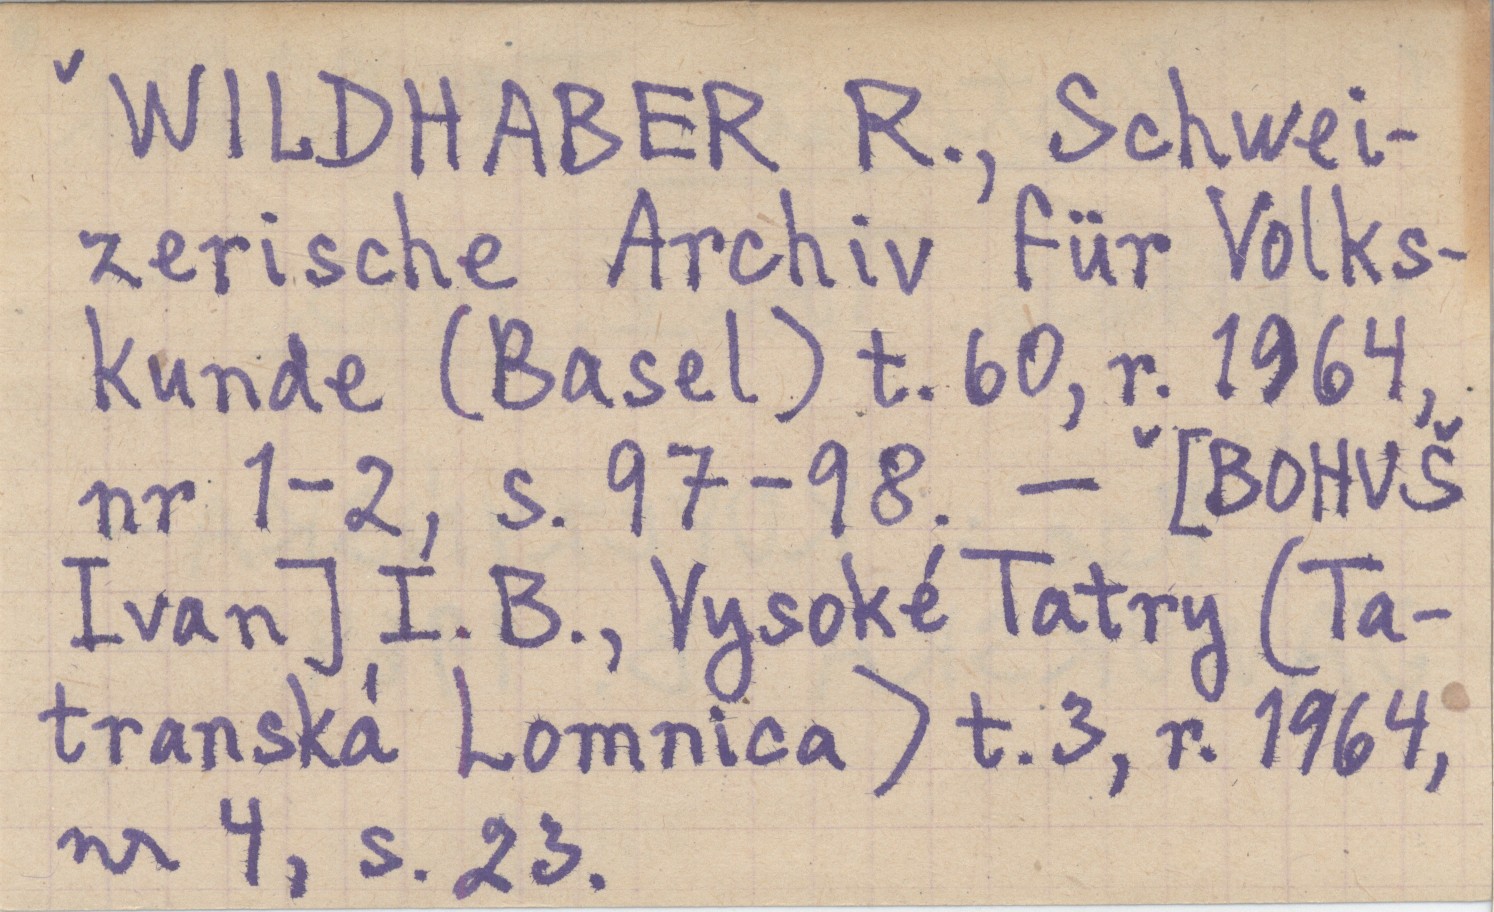 ˇWILDHABER R., Schwei-
zerische Archiv für Volks-
kunde (Basel) t. 60, r. 1964,
nr 1-2, s. 97-98. — ˇ[BOHUŠ
Ivan] I. B., Vysoké Tatry (Ta-
transká Lomnica) t. 3, r. 1964,
nr 4, s. 23.